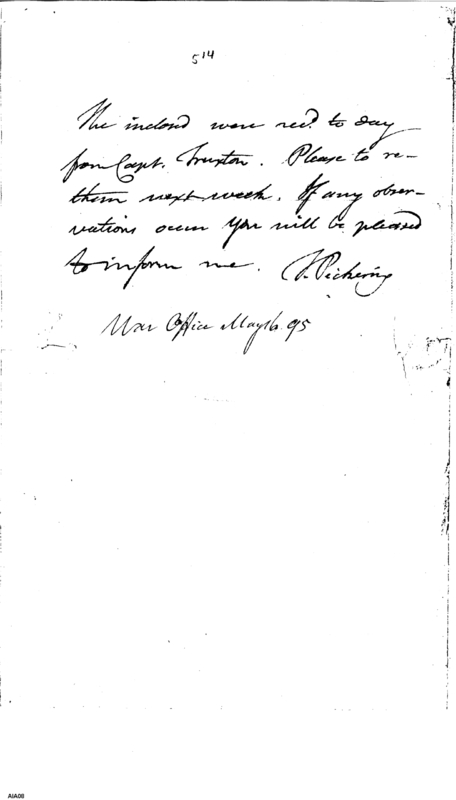 514
The inclosd were recd. to day
from Capt. Truxton. Please to re-
them next week. If any obser-
vations occur you will be pleased
to inform me. T. Pickering
War Office May 16. 95
AIA08